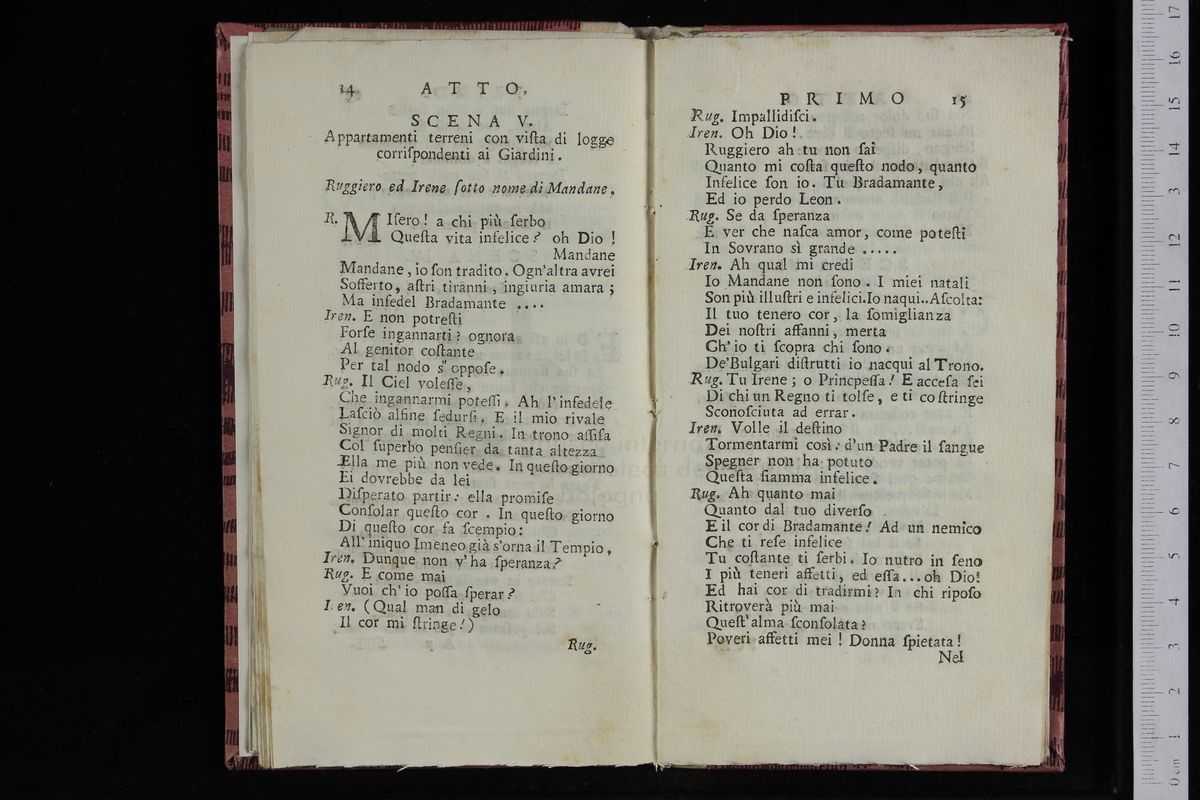 14 ATTO.
SCENA V.
Appartamenti terreni con viſta di logge
corriſpondenti ai Giardini.
Ruggiero ed Irene ſotto nome di Mandane.
R. MIſero! a chi più ſerbo
Queſta vita infelice? oh Dio!
Mandane
Mandane, io ſon tradito. Ogn'altra avrei
Sofferto, aſtri tiranni, ingiuria amara;
Ma infedel Bradamante ....
Iren. E non potreſti
Forſe ingannarti? ognora
Al genitor coſtante
Per tal nodo s' oppoſe.
Rug. Il Ciel voleſſe,
Che ingannarmi poteſſi. Ah l'infedele
Laſciò alfine ſedurſi. E il mio rivale
Signor di molti Regni. In trono aſſiſa
Col ſuperbo penſier da tanta altezza
Ella me più non vede. In queſto giorno
Ei dovrebbe da lei
Diſperato partir: ella promiſe
Conſolar queſto cor. In queſto giorno
Di queſto cor fa ſcempio:
All' iniquo Imeneo già s'orna il Tempio.
Iren. Dunque non v'ha ſperanza?
Rug. E come mai
Vuoi ch' io poſſa ſperar?
I en. (Qual man di gelo
Il cor mi ſtringe!)
Rug.
PRIMO 15
Rug. Impallidiſci.
Iren. Oh Dio!
Ruggiero ah tu non ſai
Quanto mi coſta queſto nodo, quanto
Infelice ſon io. Tu Bradamante,
Ed io perdo Leon.
Rug. Se da ſperanza
E ver che naſca amor, come poteſti
In Sovrano sì grande .....
Iren. Ah qual mi credi
Io Mandane non ſono. I miei natali
Son più illuſtri e infelici. Io naqui.. Aſcolta:
Il tuo tenero cor, la ſomiglianza
Dei noſtri affanni, merta
Ch' io ti ſcopra chi ſono.
De' Bulgari diſtrutti io nacqui al Trono.
Rug. Tu Irene; o Princpeſſa! E acceſa ſei
Di chi un Regno ti tolſe, e ti coſtringe
Sconoſciuta ad errar.
Iren. Volle il deſtino
Tormentarmi così: d'un Padre il ſangue
Spegner non ha potuto
Queſta fiamma infelice.
Rug. Ah quanto mai
Quanto dal tuo diverſo
E il cor di Bradamante! Ad un nemico
Che ti reſe infelice
Tu coſtante ti ſerbi. Io nutro in ſeno
I più teneri affetti, ed eſſa...oh Dio!
Ed hai cor di tradirmi? In chi ripoſo
Ritroverà più mai
Queſt' alma ſconſolata?
Poveri affetti mei! Donna ſpietata!
Nel